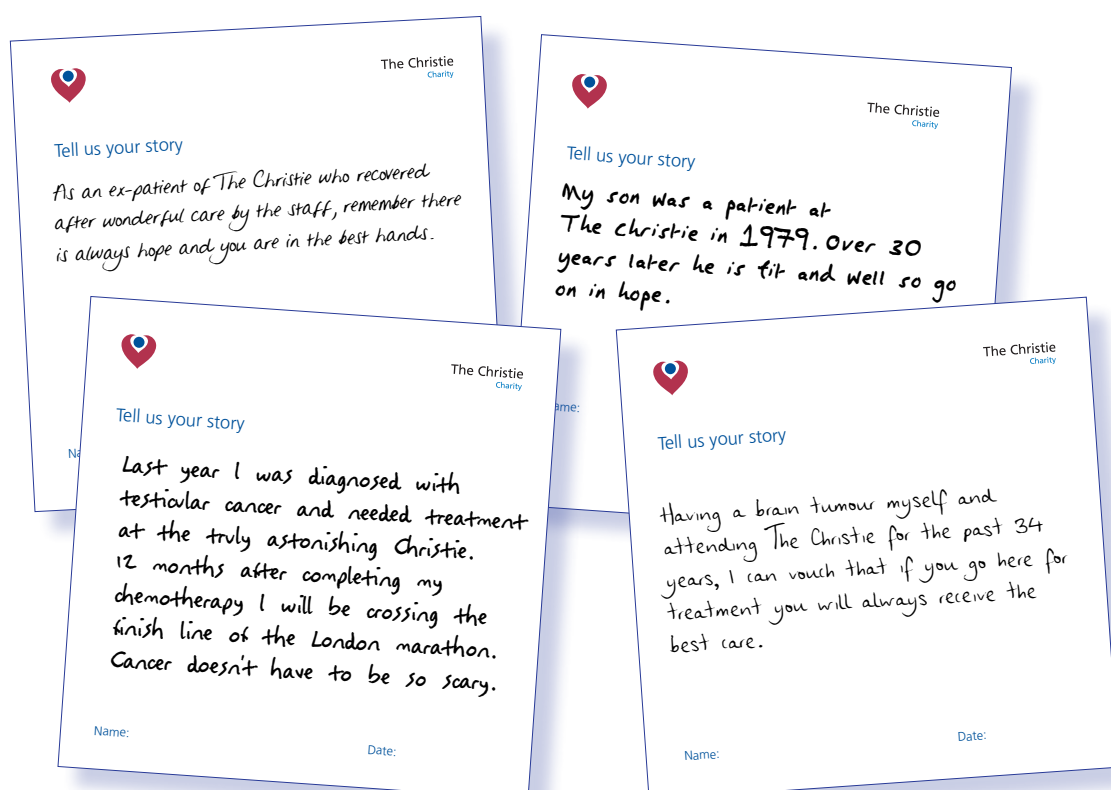 The Christie
Charity
Tell us your story
As an ex-patient of The Christie who recovered
after wonderful care by the staff, remember there
is always hope and you are in the best hands.
Na
The Christie
Charity
Tell us your story
My son was a patient at
The christie in 1979. Over 30
years later he is fit and well so go
on in hope.
ame:
The Christie
Charity
Tell us your story
Last year I was diagnosed with
testicular cancer and needed treatment
at the truly astonishing Christie.
12 months after completing my
chemotherapy I will be crossing the
finish line of the London marathon.
Cancer doesn't have to be so scary.
Name:
Date:
The Christie
Charity
Tell us your story
Having a brain tumour myself and
attending The Christie for the past 34
years, I can vouch that if you go here for
treatment you will always receive the
best care.
Name:
Date: